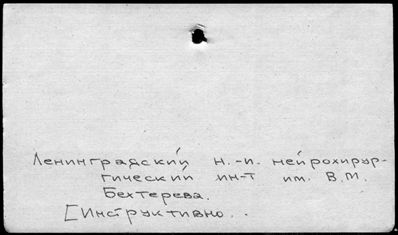 Ленинградский н.-и. нейрохирур-
гический ин-т им. В.М.
Бехтерева.
[Инструктивно...